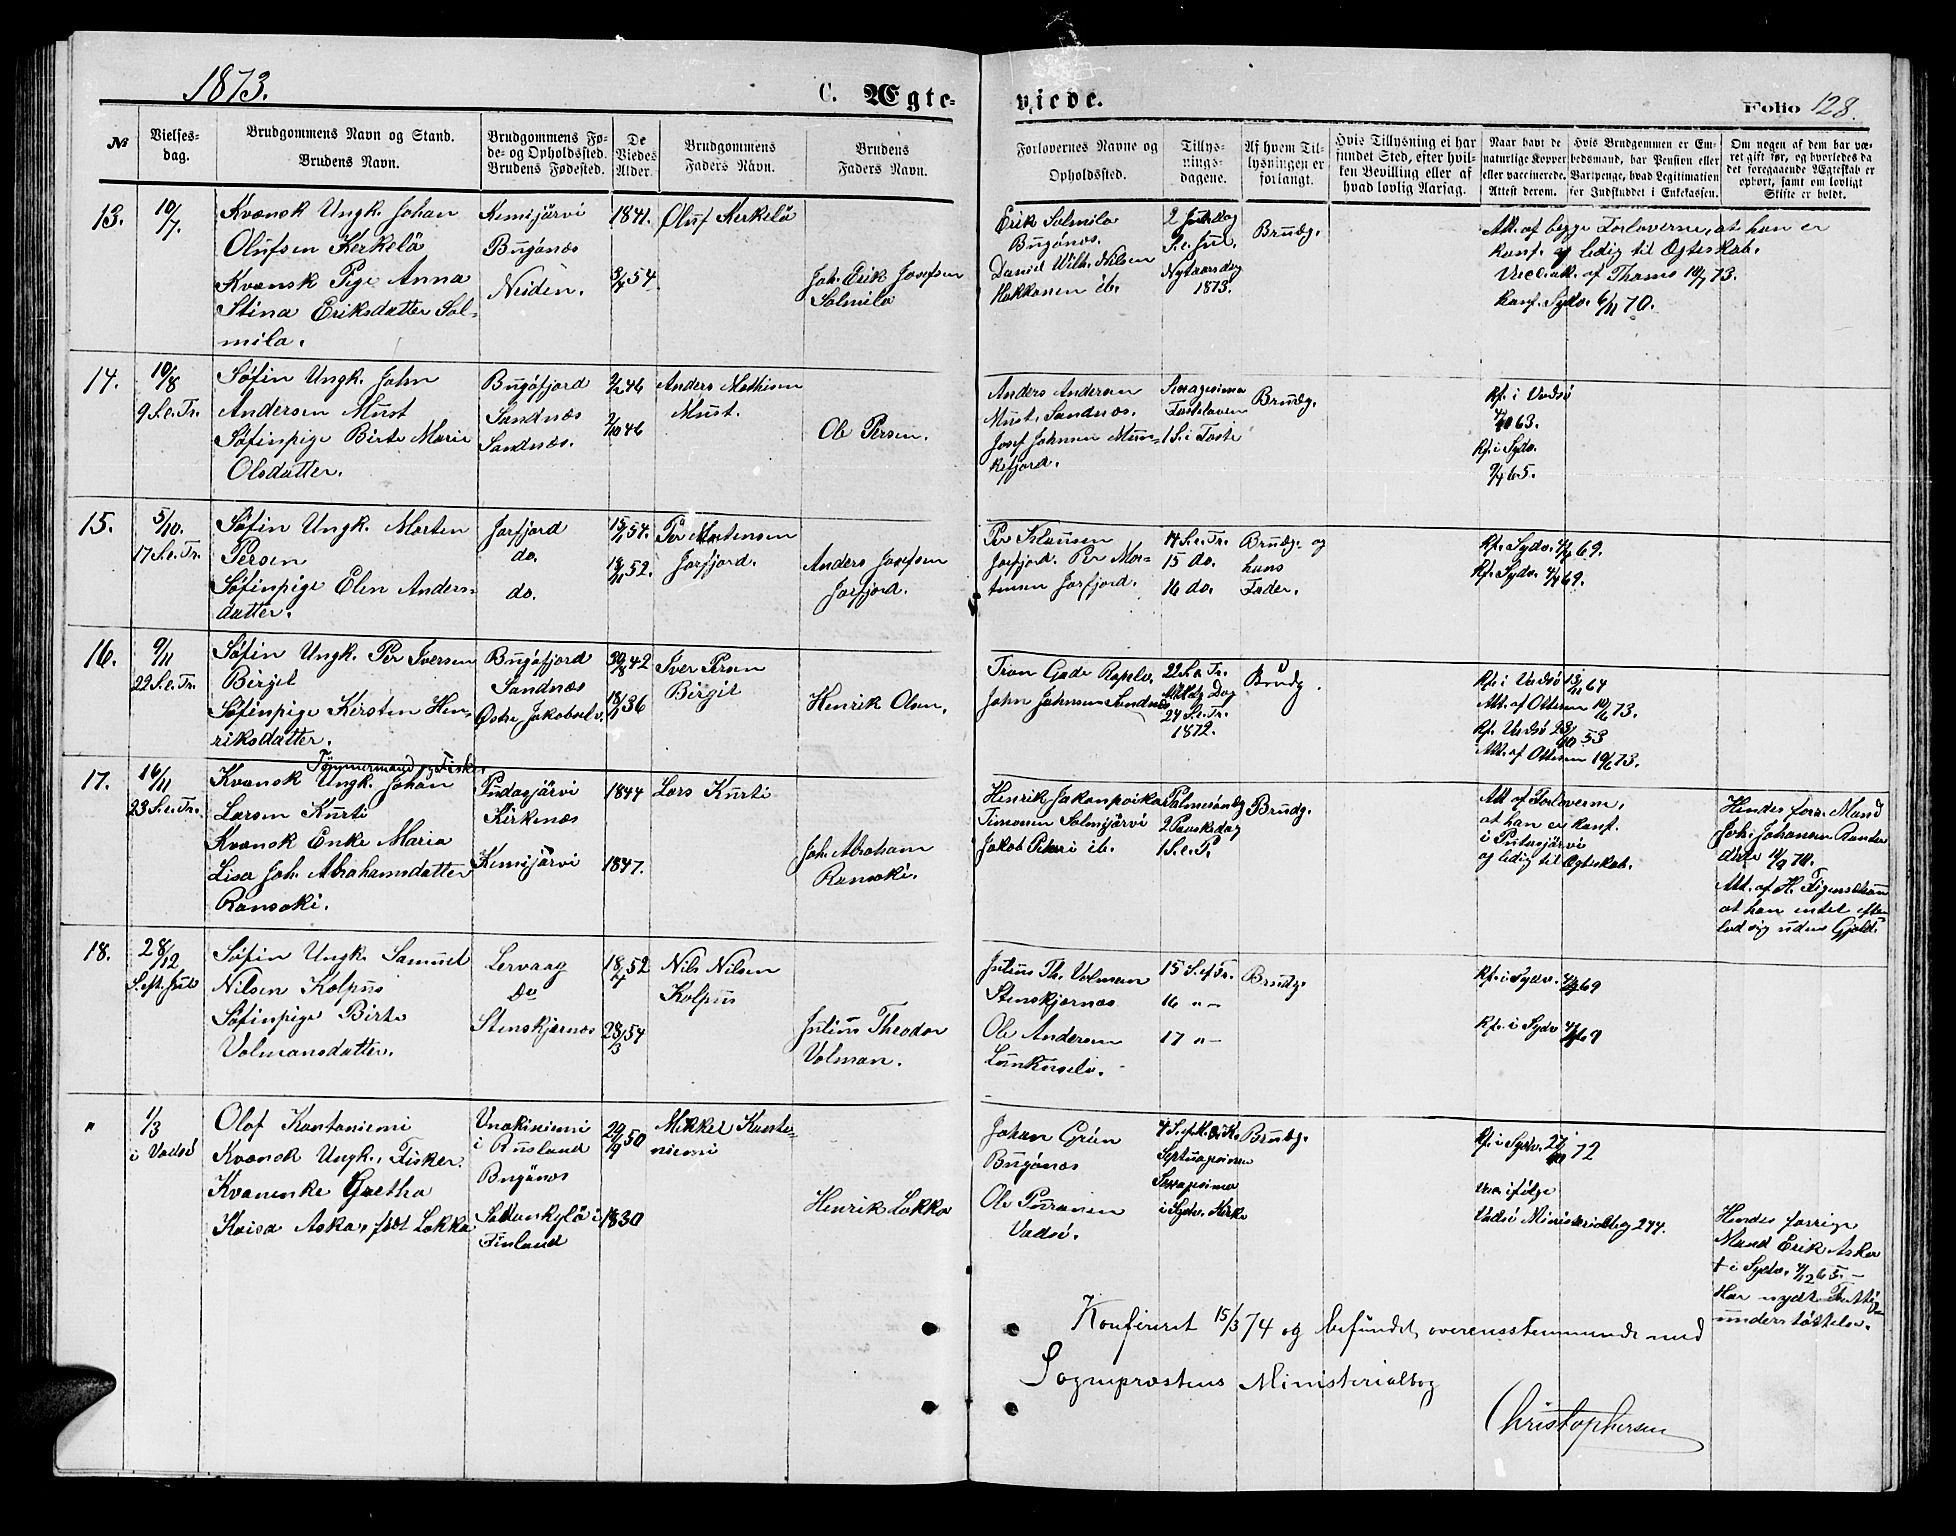 1873.
C. Ægte-
viede.
Folio 128.
№
Vielses-
dag.
Brudgommens Navn og Stand.
Brudens Navn.
Brudgommens Fø-
de- og Opholdssted.
Brudens Fødested.
De
Viedes
Alder.
Brudgommens
Faders Navn.
Brudens
Faders Navn.
Forlovernes Navne og
Opholdssted.
Tillys-
nings-
dagene.
Af hvem Til-
lysningen er
forlangt.
Hvis Tillysning ei har
fundet Sted, efter hvil-
ken Bevilling eller af
hvad lovlig Aarsag.
Naar havt de
naturlige Kopper
eller vaccinerede.
Attest derom.
Hvis Brudgommen er Em-
bedsmand, har Pension eller
Vartpenge, hvad Legitimation
for Indskuddet i Enkekassen.
Om nogen af dem har væ-
ret gift før, og hvorledes da
det foregaaende Ægteskab er
ophørt, samt om lovligt
Skifte er holdt.
13.
10/7.
Kvænsk Ungk. Johan
Olufsen Kerkelä
Kvænsk Pige Anna
Stina Eriksdatter Sal-
mila.
Kemijärvi
Bugønæs
Neiden.
1841.
3/4 54
Oluf Kerkelä
Joh. Erik Josefsen
Salmila
Erik Salmila
Bugönæs.
Daniel Wilh. Nilsen
Hakkanen ib.
2 Juledag
S. e. Jul.
Nytaarsdag
1873.
Brudg.
Att. af begge Forloverne, at han er
konf. og ledig til Ægteskab.
Vacc. att. af Thams 10/7 73.
Konf. Sydv. 6/11 70.
14.
10/8
9 S. e. Tr.
Søfin Ungk. John
Andersen Must
Søfinpige Birte Marie
Olsdatter.
Bugøfjord
Sandnæs
Sandnæs.
2/2 46
2/10 46
Anders Mathisen
Must.
Ole Persen.
Anders Andersen
Must, Sandnæs.
Josef Johnsen Mun-
kefjord.
Sexagesima
Fastelaven
1 S. i Faste
Brudg.
Kf. i Vadsö
4/10 63.
Kf. i Sydv.
9/4 65.
15.
5/10.
17 S. e. Tr.
Søfin Ungk. Morten
Persen
Søfinpige Elen Anders-
datter.
Jarfjord
do.
do.
15/1 54.
18/11 52.
Per Mortensen
Jarfjord.
Anders Josefsen
Jarfjord.
Per Klausen
Jarfjord. Per Mor-
tensen Jarfjord.
14 S. e. Tr.
15 do.
16 do.
Brudg. og
hans
Fader.
Kf. Sydv. 4/4 69.
Kf. Sydv. 4/4 69.
16.
9/11
22 S. e. Tr.
Søfin Ungk. Per Iversen
Birget
Søfinpige Kirsten Hen-
riksdatter.
Bugøfjord
Sandnæs
Østre Jakobselv.
30/8 42
18/1 36
Iver Persen
Birgit
Henrik Olsen.
Tron Gade
John Johnsen Sandnæs
22 S. e. Tr.
Allehlg Dag
24 S. e. Tr.
1872.
Brudg.
Kf. i Vadsö 13/11 64
Att. af Ottesen 10/6 73.
Kf. Vadsö 23/10 53
Att. af Ottesen 10/6 73.
17.
16/11
23 S. e. Tr.
Tømmermand og Fisker
Kvænsk Ungk. Johan
Larsen Kurti
Kvænsk Enke Maria
Lisa Joh. Abrahamsdatter
Ransaki.
Pudasjärvi
Kirkenæs
Kemijärvi
1844
1847.
Lars Kurti
Joh. Abraham
Ransaki.
Henrik
Timonen Salmijärvi
Jakob Petteri ib.
Palmesöndg
2 Paaskedag
1 S. e. P.
Brudg.
Att af Forloverne,
at han er konf.
i Putasjärvi
og ledig til Ægteskab.
Hendes forr. Mand
Joh. Johansen
døde 11/9 70.
Att. af H. Figenschau
at han intet efter-
lod sig uden Gjeld.
18.
28/12
S. eft. Jul
Søfin Ungk. Samuel
Nilsen Kolpus
Søfinpige Birte
Volmansdatter.
Lervaag
Do
Stenskjærnæs
18/4 52
28/3 54
Nils Nilsen
Kolpus
Julius Theodor
Volman.
Julius Th. Volman
Stenskjærnæs
Ole Andersen
Lankerselv.
15 S. ef Tr.
16 " –
17 " –
Brudg.
Kf. i Sydv. 4/4 69
Kf. i Sydv 4/4 69
"
1/3
i Vadsö
Olof Kantoniemi
Kvænsk Ungk. Fisker.
Kvænenke Gretha
Kaisa Aska, født Lakka
Vnakiniemi
i Rusland
Bugønæs
Sodankylä i
Finland
29/9 50
1830
Mikkel Kanto-
niemi
Henrik Lakka
Johan Grün
Bugønæs
Ole Puranen
Vadsö.
4 S. eft. H. 3 K.
Septuagesima
Sexagesima
i Sydv. Kirke
Brudg.
Kf. i Sydv. 27/10 72
Vacc. ifølge
Vadsö Ministerialbog 244.
Hendes forrige
Mand Erik Aska
† i Sydv. 4/12 65. –
Har nydt Fattig-
understøttelse.
Konfereret 15/3 74 og befundet overensstemmende med
Sogneprestens Ministerialbog
Christophersen